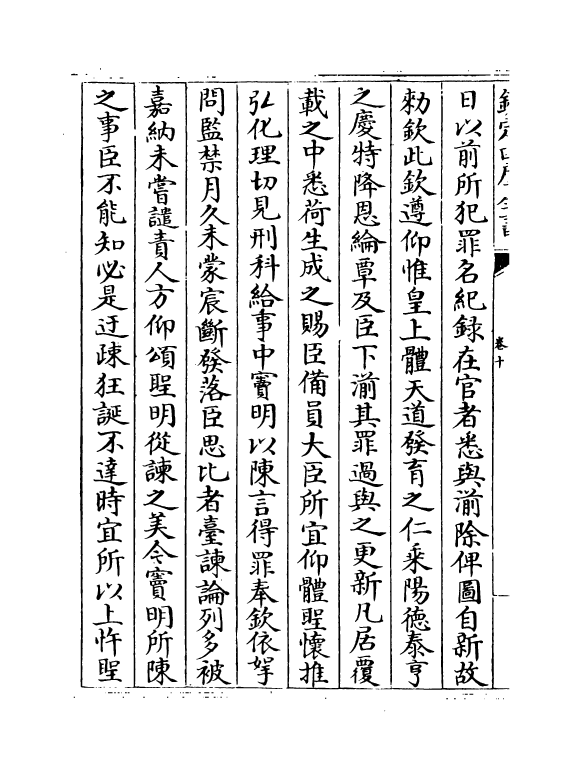 欽定四庫全書
卷十
日以前所犯罪名紀録在官者悉與湔除俾圖自新故
勅欽此欽遵仰惟皇上體天道發育之仁乘陽德泰亨
之慶特降恩綸覃及臣下湔其罪過與之更新凡居覆
載之中悉荷生成之賜臣備員大臣所宜仰體聖懷推
弘化理切見刑科給事中竇明以陳言得罪奉欽依拏
問監禁月久未蒙宸斷發落臣思比者臺諫論列多被
嘉納未嘗譴責人方仰頌聖明從諫之美今竇明所陳
之事臣不能知必是迂疎狂誕不達時宜所以上忤聖